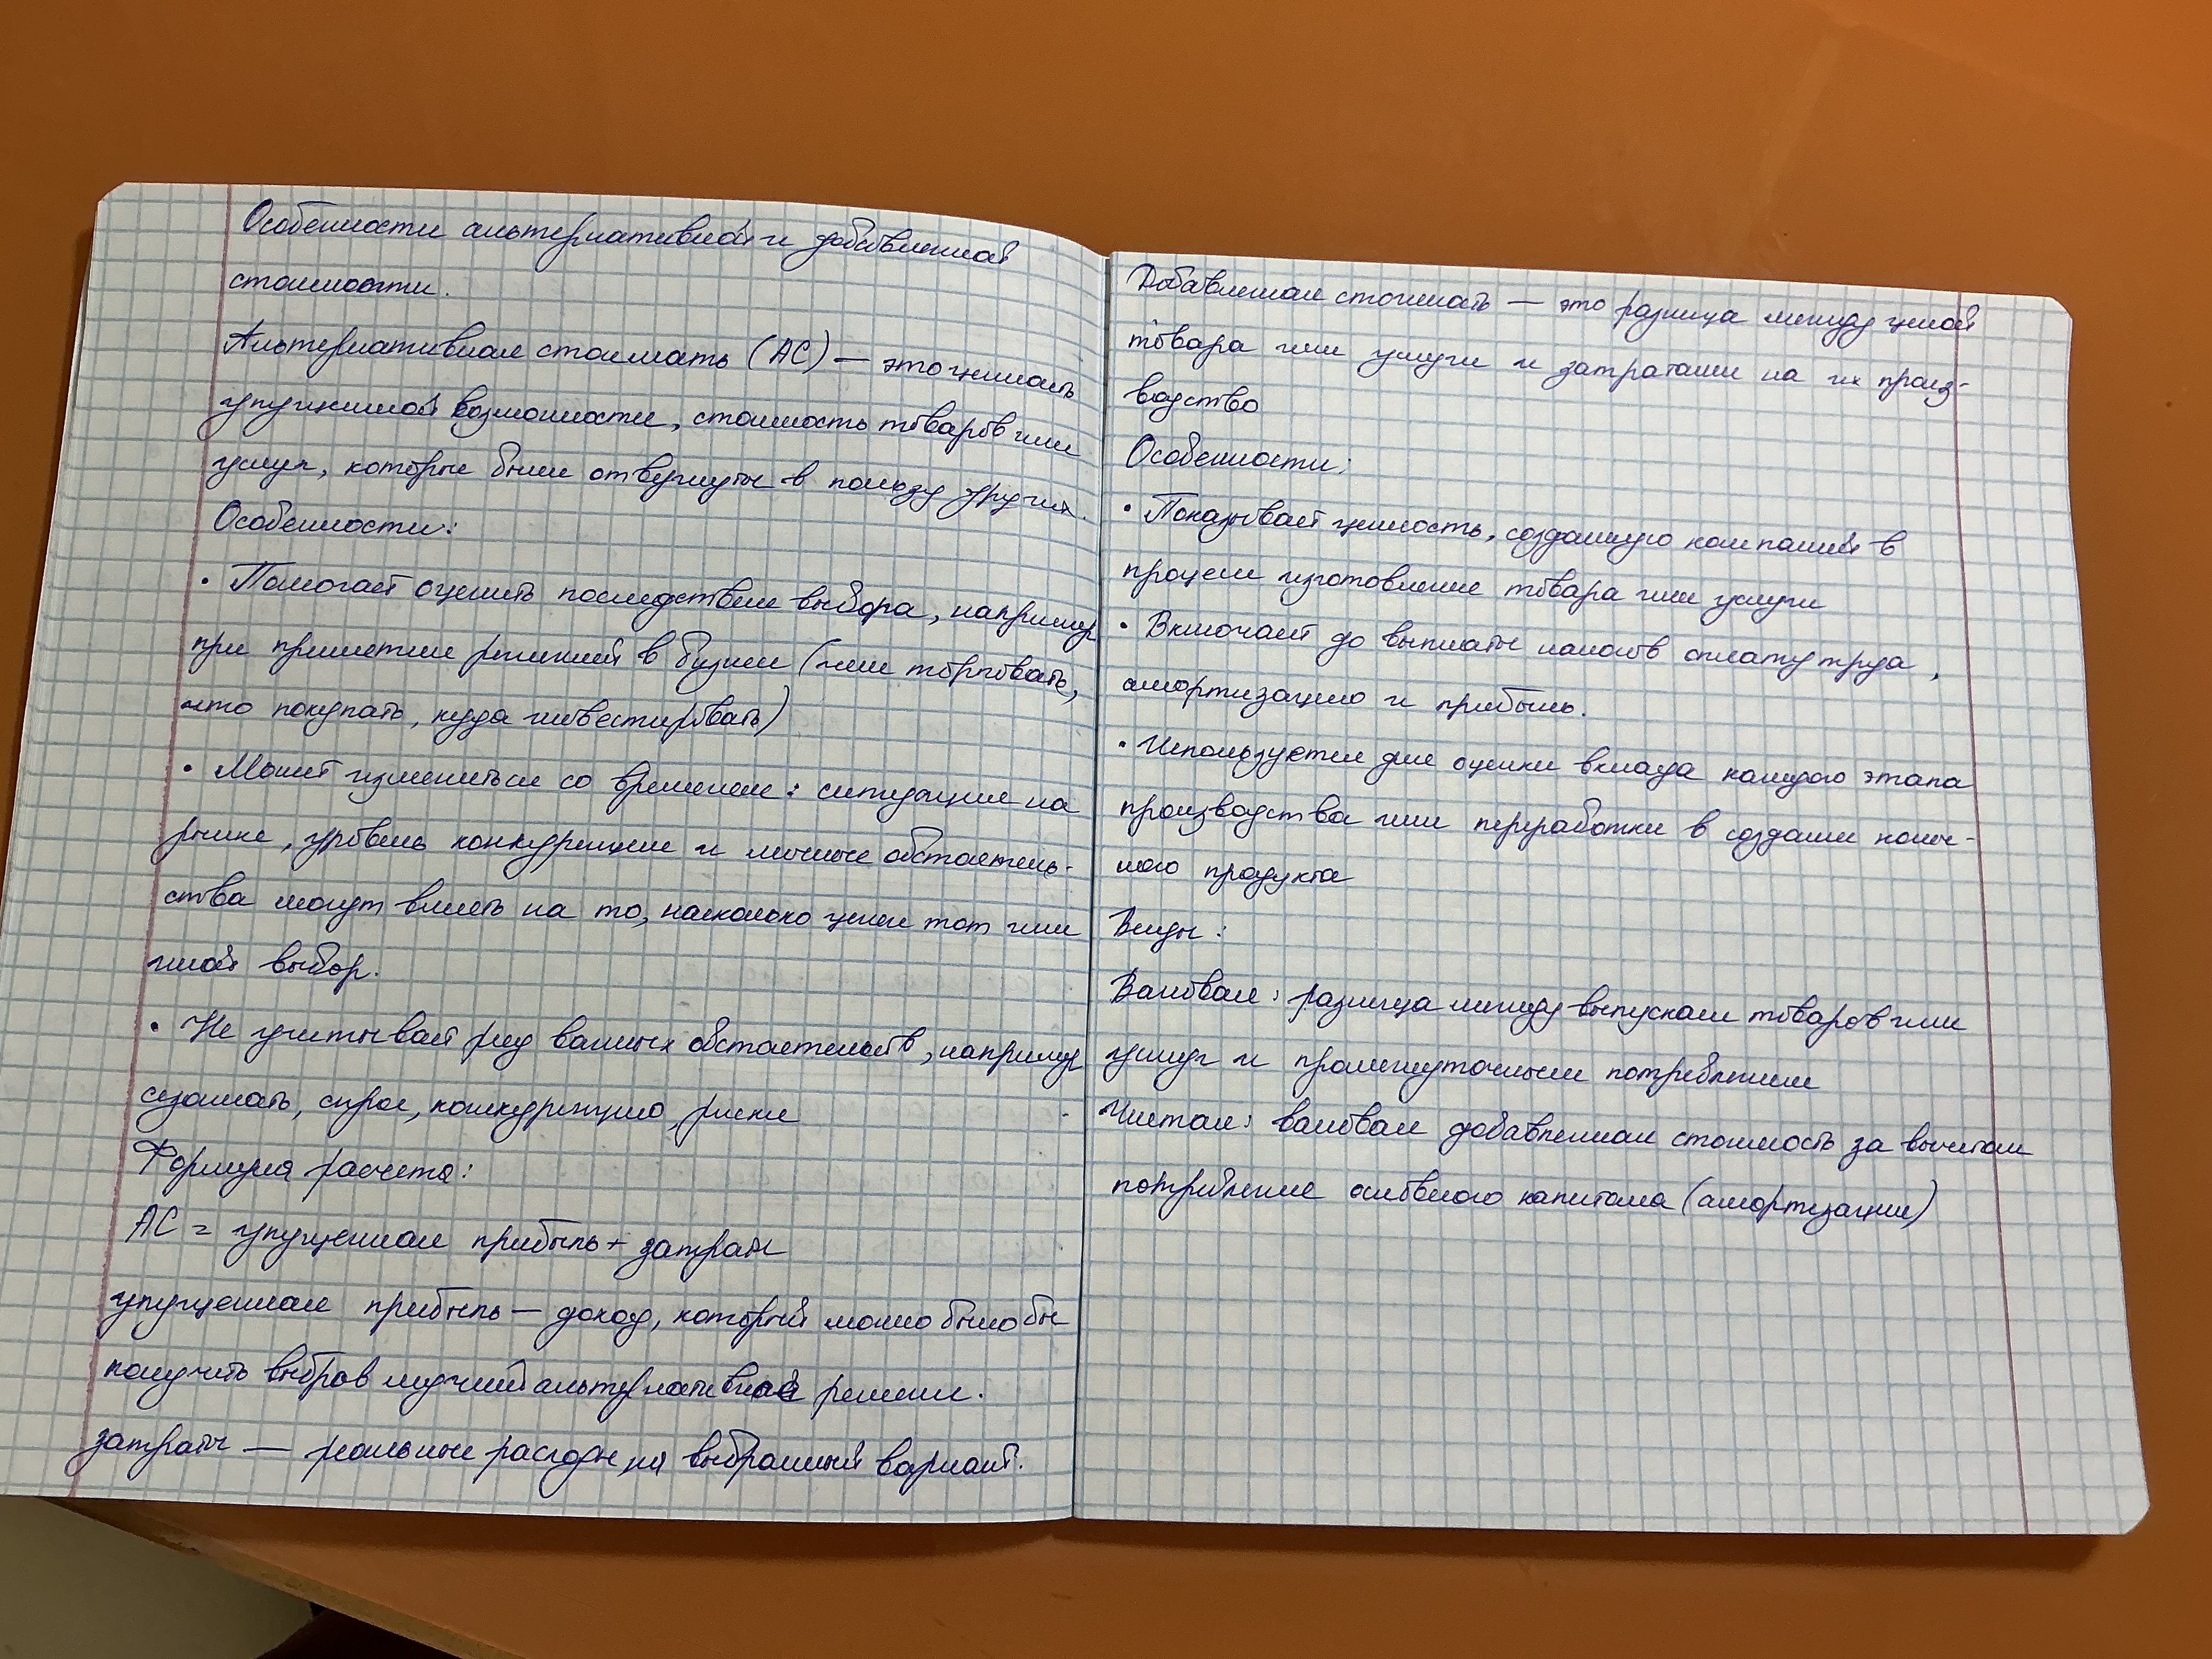 Особенности альтернативной и добавленной
стоимости.
Альтернативная стоимость (АС) — это ценность
упущенной возможности, стоимость товаров или
услуг, которые были отвергнуты в пользу других.
Особенности:
• Помогает оценить последствия выбора, например
при принятии решений в бизнесе (чем торговать,
что покупать, куда инвестировать)
• Может измениться со временем: ситуация на
рынке, уровень конкуренции и личные обстоятель-
ства могут влиять на то, насколько ценен тот или
иной выбор.
• Не учитывает ряд важных обстоятельств, например
сезонность, спрос, конкуренцию, риски
Формула расчета:
АС = упущенная прибыль + затраты
упущенная прибыль — доход, который можно было бы
получить выбрав лучший альтернативное решение.
затраты — реальные расходы на выбранный вариант.
Добавленная стоимость — это разница между ценой
товара или услуги и затратами на их произ-
водство
Особенности:
• Показывает ценность, созданную компанией в
процессе изготовления товара или услуги
• Включает до выплаты налогов оплату труда,
амортизацию и прибыль.
• Используется для оценки вклада каждого этапа
производства или переработки в создании конеч-
ного продукта
Виды:
Валовая: разница между выпуском товаров или
услуг и промежуточным потреблением
Чистая: валовая добавленная стоимость за вычетом
потребления основного капитала (амортизации)